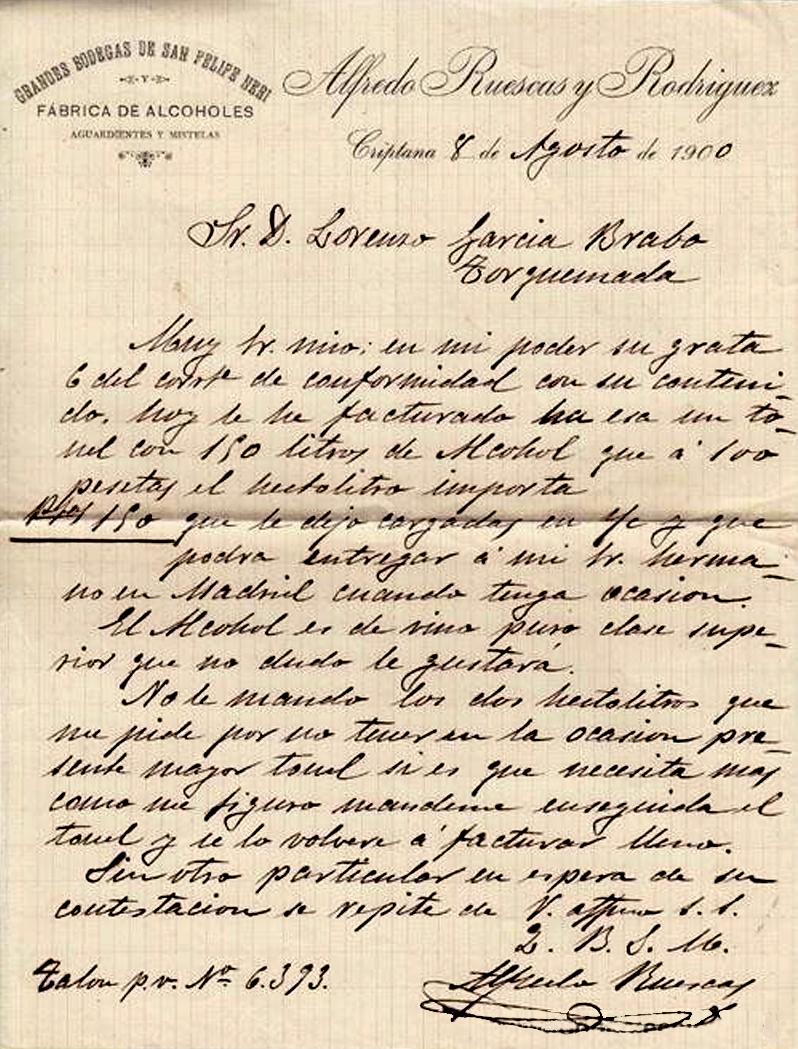 GRANDES BODEGAS DE SAN FELIPE NERI
Y
FÁBRICA DE ALCOHOLES
AGUARDIENTES Y MISTELAS
Alfredo Ruescas y Rodriguez
Criptana 8 de Agosto de 1900
Sr. D. Lorenzo Garcia Brabo
Torquemada
Muy Sr. mio: en mi poder su grata
6 del corrte de conformidad con su conteni-
do, hoy le he facturado ha esa un to-
nel con 150 litros de Alcohol que á 100
pesetas el hectolitro importa
Ptas 150 que le dejo cargadas en s/c y que
podra entregar á mi Sr. herma-
no en Madrid cuando tenga ocasion.
El Alcohol es de vino puro clase supe-
rior que no dudo le gustará.
No le mando los dos hectolitros que
me pide por no tener en la ocasion pre-
sente mayor tonel si es que necesita mas
como me figuro mandeme enseguida el
tonel y se lo volvere á facturar lleno.
Sin otro particular en espera de su
contestacion se repite de V. affmo s. s.
Q. B. S. M.
Talon p.v. No 6.393.
Alfredo Ruescas